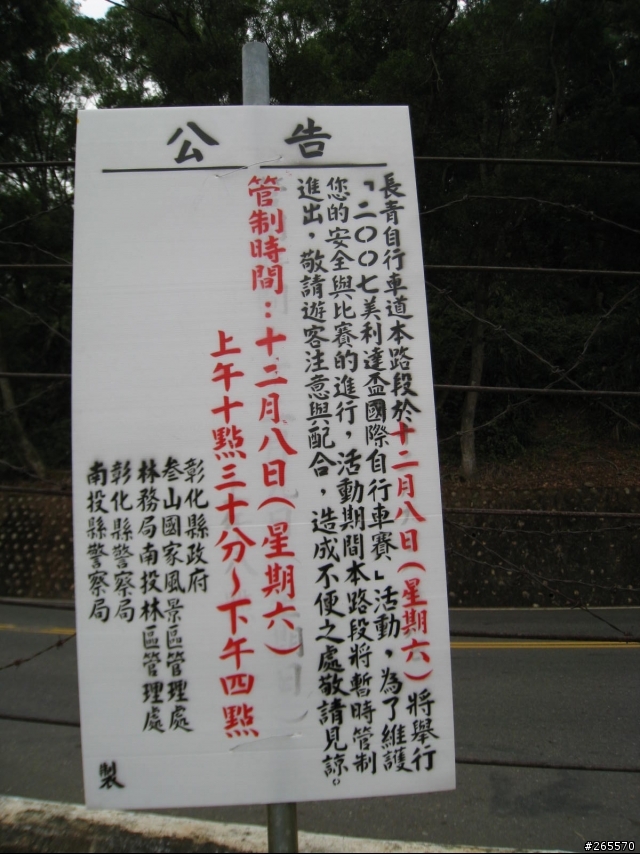 公告
長青自行車道本路段於十二月八日(星期六)將舉行
「二〇〇七美利達盃國際自行車賽」活動，為了維護
您的安全與比賽的進行，活動期間本路段將暫時管制
進出，敬請遊客注意與配合，造成不便之處敬請見諒。
管制時間：十二月八日(星期六)
上午十點三十分～下午四點
彰化縣政府
叄山國家風景區管理處
林務局南投林區管理處
彰化縣警察局
南投縣警察局
製
#265570